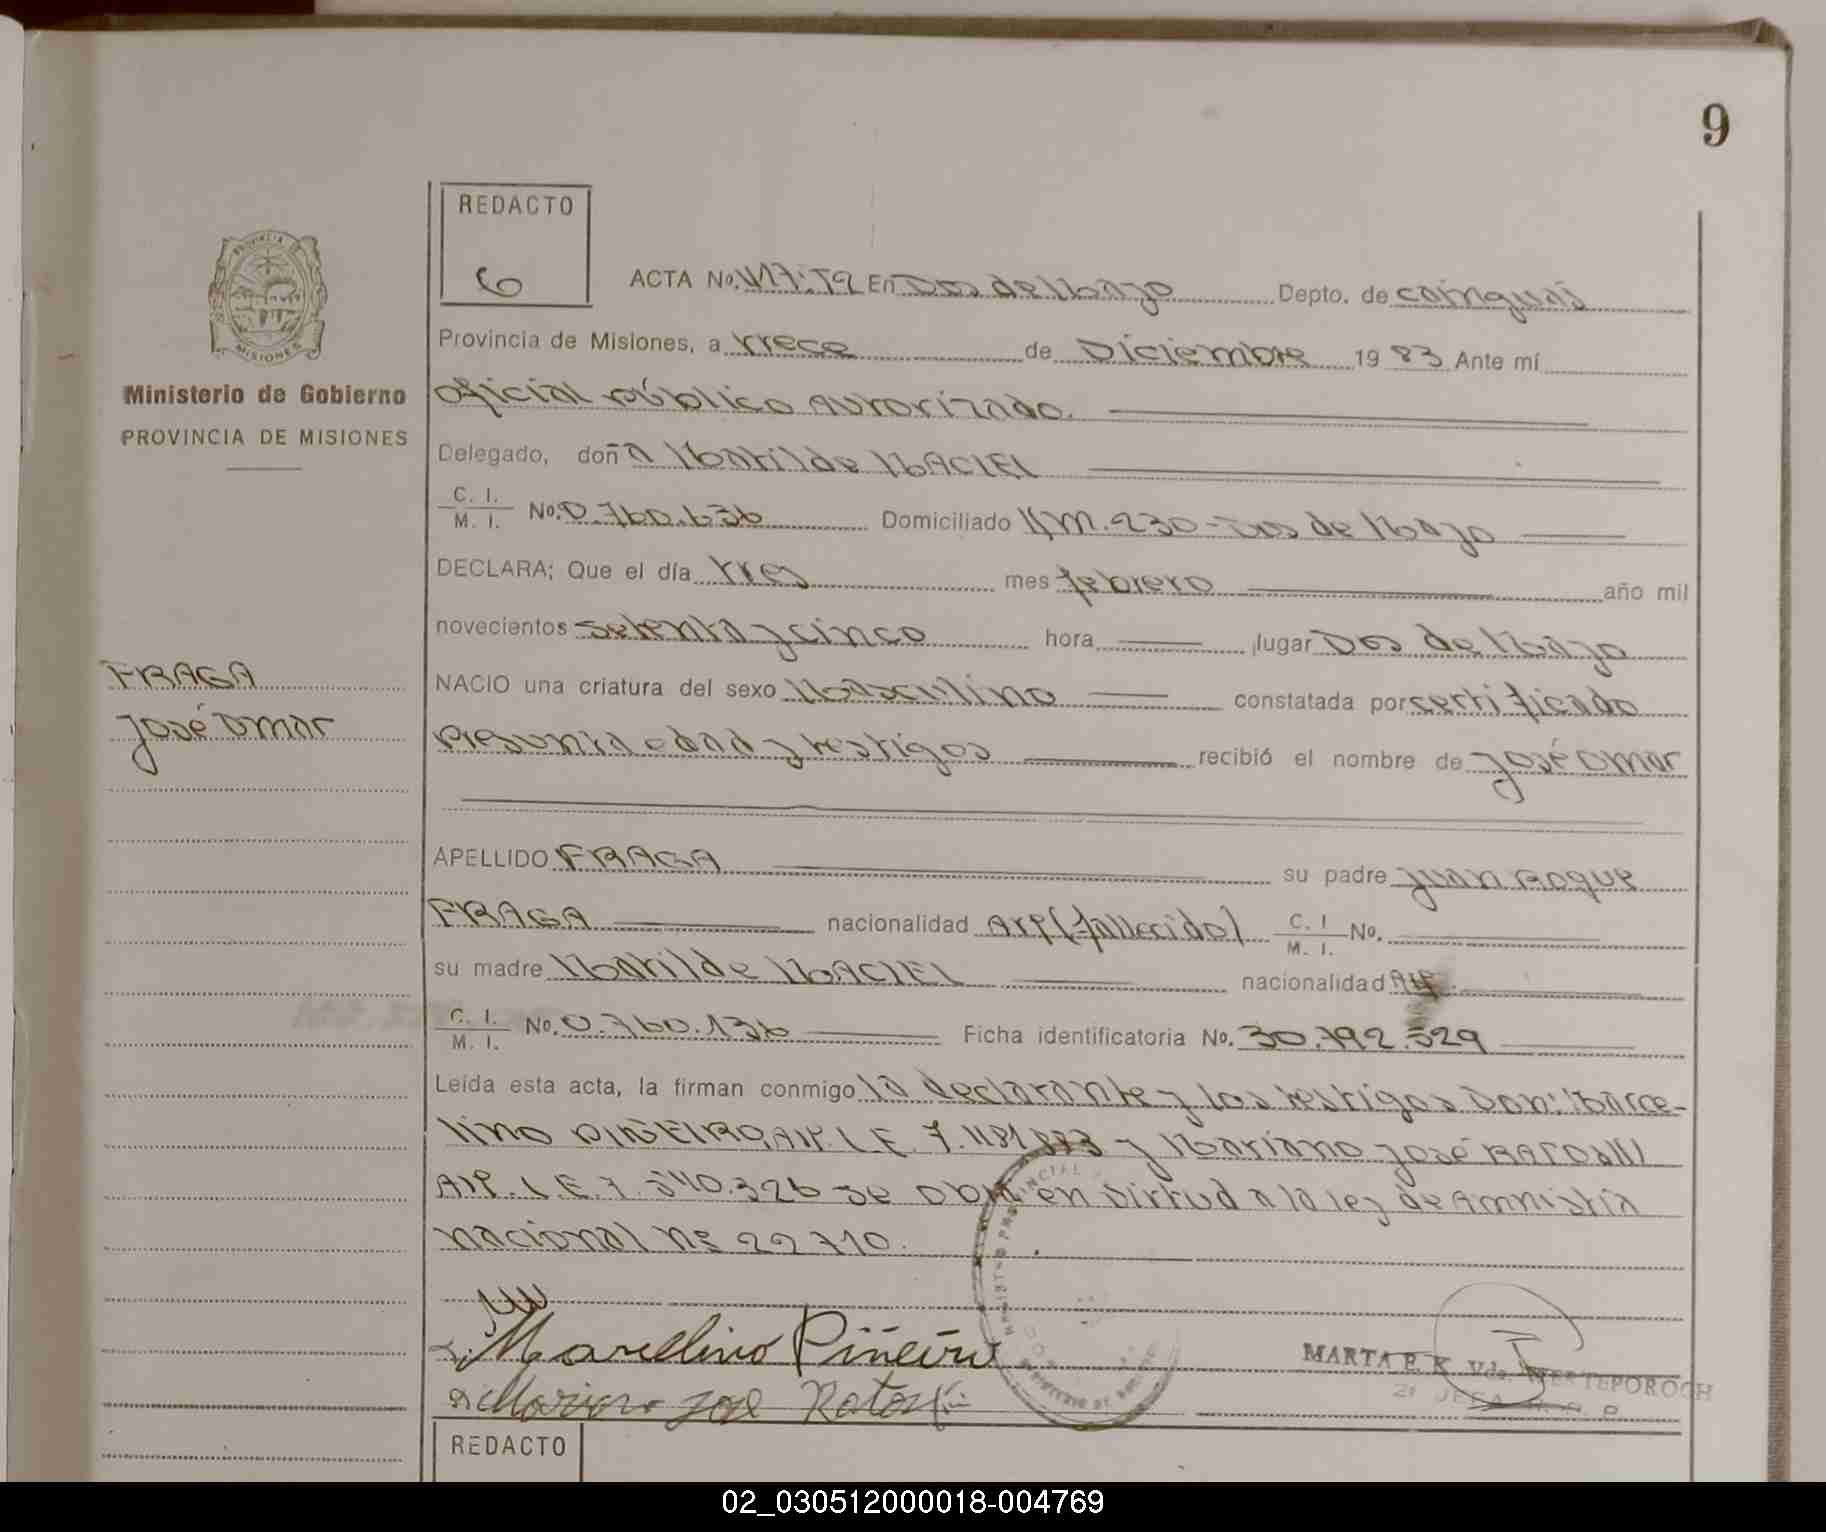 9
REDACTO
6
PROVINCIA DE
MISIONES
Ministerio de Gobierno
PROVINCIA DE MISIONES
FRAGA
José Omar
ACTA No. 417:T2 En Dos de Mayo Depto. de Cainguás
Provincia de Misiones, a trece de Diciembre 19 83 Ante mí
Oficial público Autorizado.
Delegado, doñ a Matilde MACIEL
C. I. / M. I. No. 0.760.636 Domiciliado KM.230-Dos de Mayo
DECLARA; Que el día tres mes febrero año mil
novecientos setenta y cinco hora lugar Dos de Mayo
NACIO una criatura del sexo Masculino constatada por certificado
Presunta edad y testigos recibió el nombre de José Omar
APELLIDO FRAGA su padre Juan Roque
FRAGA nacionalidad Arg (fallecido) C. I / M. I. No.
su madre Matilde MACIEL nacionalidad Arg.
C. I. / M. I. No. 0.760.136 Ficha identificatoria No. 30.792.529
Leída esta acta, la firman conmigo la declarante y los testigos Don: Marce-
lino PIÑEIRO, Arg. L.E. 7.481.873 y Mariano José
Arg. L.E. 7.540.326 se obra en virtud a la ley de Amnistía
nacional Nº 22710.
Marcelino Piñeiro
Mariano José
MARTA E. K. Vda.
JEFA
REDACTO
02_030512000018-004769